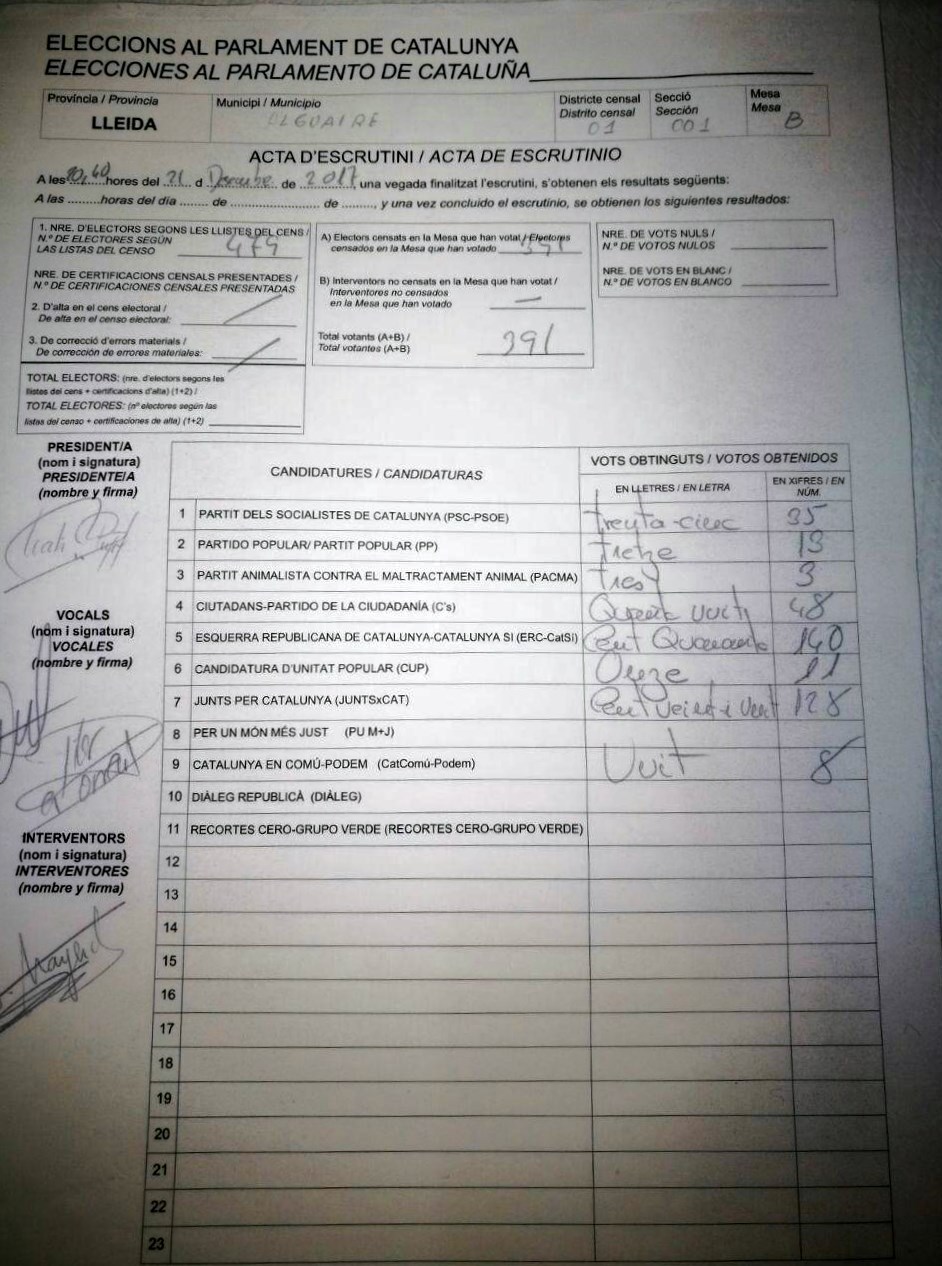 ELECCIONS AL PARLAMENT DE CATALUNYA
ELECCIONES AL PARLAMENTO DE CATALUÑA
Província / Provincia
LLEIDA
Municipi / Municipio
ALGUAIRE
Districte censal
Distrito censal
01
Secció
Sección
001
Mesa
Mesa
B
ACTA D'ESCRUTINI / ACTA DE ESCRUTINIO
A les 10,40 hores del 21 d Desembre de 2017, una vegada finalitzat l'escrutini, s'obtenen els resultats següents:
A las .........horas del día ........ de ........................ de ........, y una vez concluido el escrutinio, se obtienen los siguientes resultados:
1. NRE. D'ELECTORS SEGONS LES LLISTES DEL CENS /
N.º DE ELECTORES SEGÚN
LAS LISTAS DEL CENSO 479
NRE. DE CERTIFICACIONS CENSALS PRESENTADES /
N.º DE CERTIFICACIONES CENSALES PRESENTADAS
2. D'alta en el cens electoral /
De alta en el censo electoral:
3. De correcció d'errors materials /
De corrección de errores materiales:
TOTAL ELECTORS: (nre. d'electors segons les
llistes del cens + certificacions d'alta) (1+2) /
TOTAL ELECTORES: (nº electores según las
listas del censo + certificaciones de alta) (1+2)
A) Electors censats en la Mesa que han votat / Electores
censados en la Mesa que han votado 391
B) Interventors no censats en la Mesa que han votat /
Interventores no censados
en la Mesa que han votado —
Total votants (A+B) /
Total votantes (A+B) 391
NRE. DE VOTS NULS /
N.º DE VOTOS NULOS
NRE. DE VOTS EN BLANC /
N.º DE VOTOS EN BLANCO
PRESIDENT/A
(nom i signatura)
PRESIDENTE/A
(nombre y firma)
VOCALS
(nom i signatura)
VOCALES
(nombre y firma)
INTERVENTORS
(nom i signatura)
INTERVENTORES
(nombre y firma)
CANDIDATURES / CANDIDATURAS
VOTS OBTINGUTS / VOTOS OBTENIDOS
EN LLETRES / EN LETRA
EN XIFRES / EN NÚM.
1 PARTIT DELS SOCIALISTES DE CATALUNYA (PSC-PSOE) Trenta-cinc 35
2 PARTIDO POPULAR/ PARTIT POPULAR (PP) Tretze 13
3 PARTIT ANIMALISTA CONTRA EL MALTRACTAMENT ANIMAL (PACMA) Tres 3
4 CIUTADANS-PARTIDO DE LA CIUDADANÍA (C's) vuit 48
5 ESQUERRA REPUBLICANA DE CATALUNYA-CATALUNYA SI (ERC-CatSí) Cent Quaranta 140
6 CANDIDATURA D'UNITAT POPULAR (CUP) Onze 11
7 JUNTS PER CATALUNYA (JUNTSxCAT) Cent Veint i Vuit 128
8 PER UN MÓN MÉS JUST (PU M+J)
9 CATALUNYA EN COMÚ-PODEM (CatComú-Podem) Vuit 8
10 DIÀLEG REPUBLICÀ (DIÀLEG)
11 RECORTES CERO-GRUPO VERDE (RECORTES CERO-GRUPO VERDE)
12
13
14
15
16
17
18
19
20
21
22
23